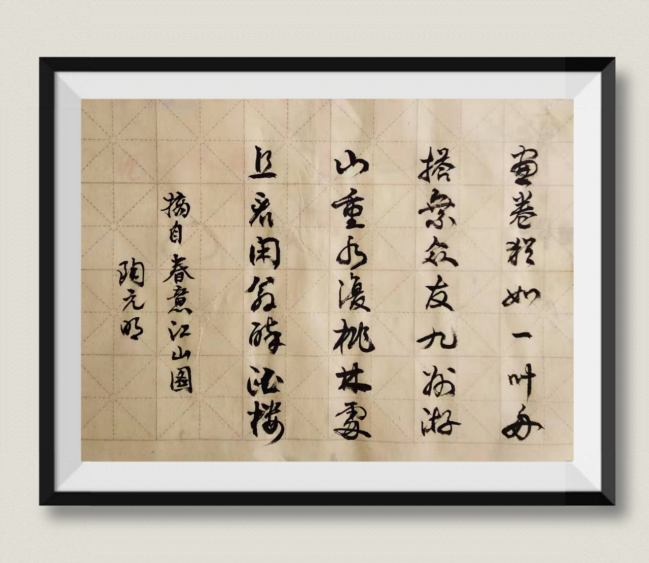 畫卷猶如一叶舟
搭乘众友九州游
山重水復桃林處
且看闲翁醉酒楼
摘自春意江山圖
陶元明